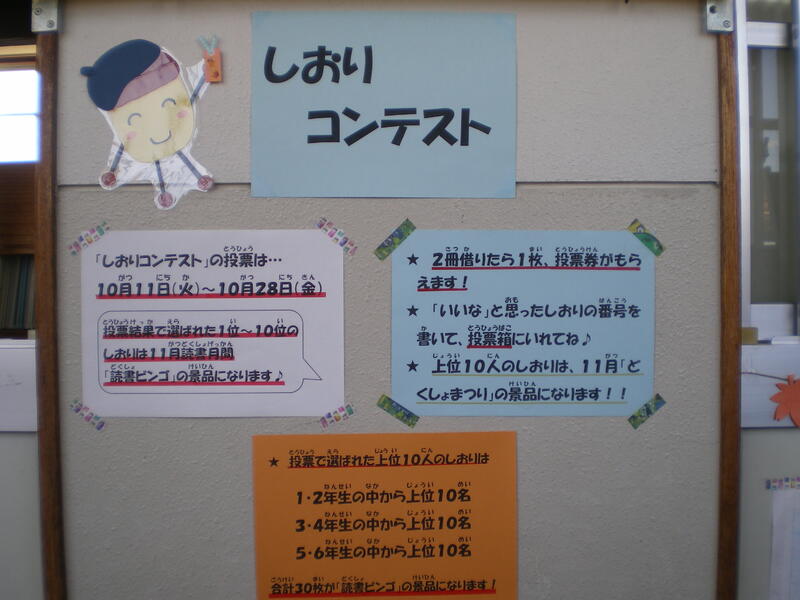 しおり
コンテスト
「しおりコンテスト」の投票は…
10月11日(火)～10月28日(金)
投票結果で選ばれた1位～10位の
しおりは11月読書月間
「読書ビンゴ」の景品になります♪
★ 2冊借りたら1枚、投票券がもら
えます！
★ 「いいな」と思ったしおりの番号を
書いて、投票箱にいれてね♪
★ 上位10人のしおりは、11月「ど
くしょまつり」の景品になります！！
★ 投票で選ばれた上位10人のしおりは
1・2年生の中から上位10名
3・4年生の中から上位10名
5・6年生の中から上位10名
合計30枚が「読書ビンゴ」の景品になります！